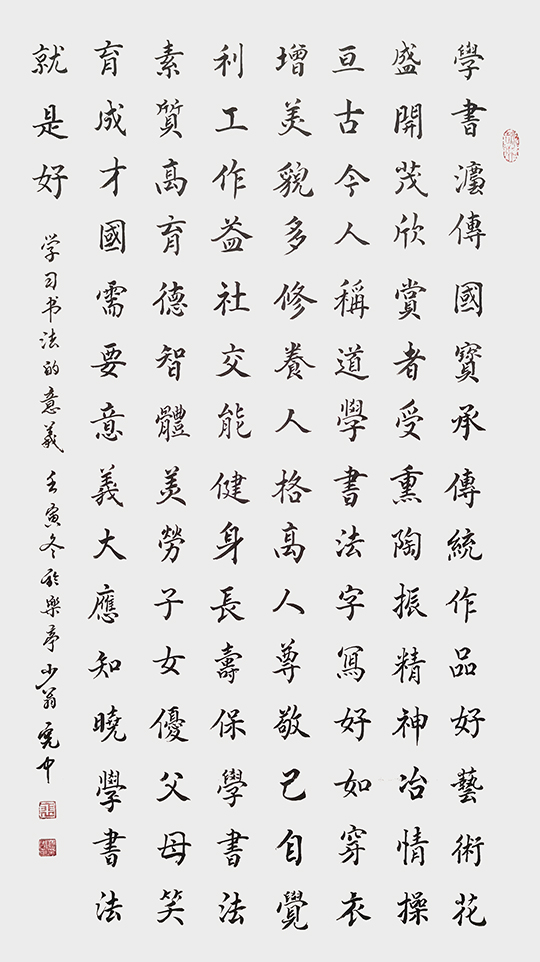 學書灋傳國寶承傳統作品好藝術花
盛開茂欣賞者受熏陶振精神冶情操
亘古今人稱道學書法字寫好如穿衣
增美貌多修養人格高人尊敬己自覺
利工作益社交能健身長壽保學書法
素質高育德智體美勞子女優父母笑
育成才國需要意義大應知曉學書法
就是好
学习书法的意義 壬寅冬於樂亭少翁宪中